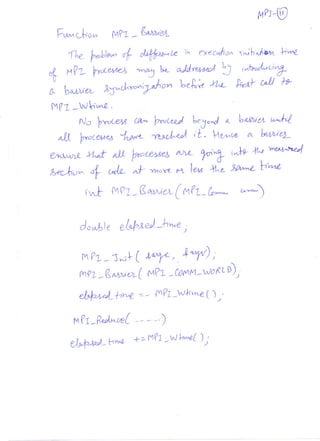 MPI-11
Function MPI_Barrier
The problem of difference in execution initiation time
of MPI processes may be addressed by introducing
a barrier synchronization before the first call to
MPI_Wtime.
No process can proceed beyond a barrier until
all processes have reached it. Hence a barrier
ensure that all processes are going into the measured
section of code at more or less the same time
int MPI_Barrier(MPI_Comm comm)
double elapsed_time;
MPI_Init(&argc, &argv);
MPI_Barrier(MPI_COMM_WORLD);
elapsed_time = - MPI_Wtime();
MPI_Reduce( ----- )
elapsed_time += MPI_Wtime();